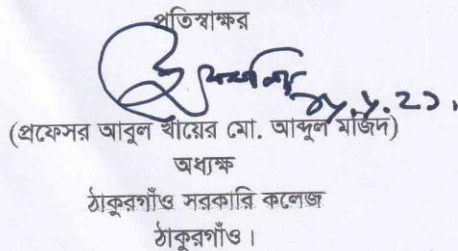 প্রতিস্বাক্ষর
(প্রফেসর আবুল খায়ের মো. আব্দুল মজিদ)
অধ্যক্ষ
ঠাকুরগাঁও সরকারি কলেজ
ঠাকুরগাঁও।